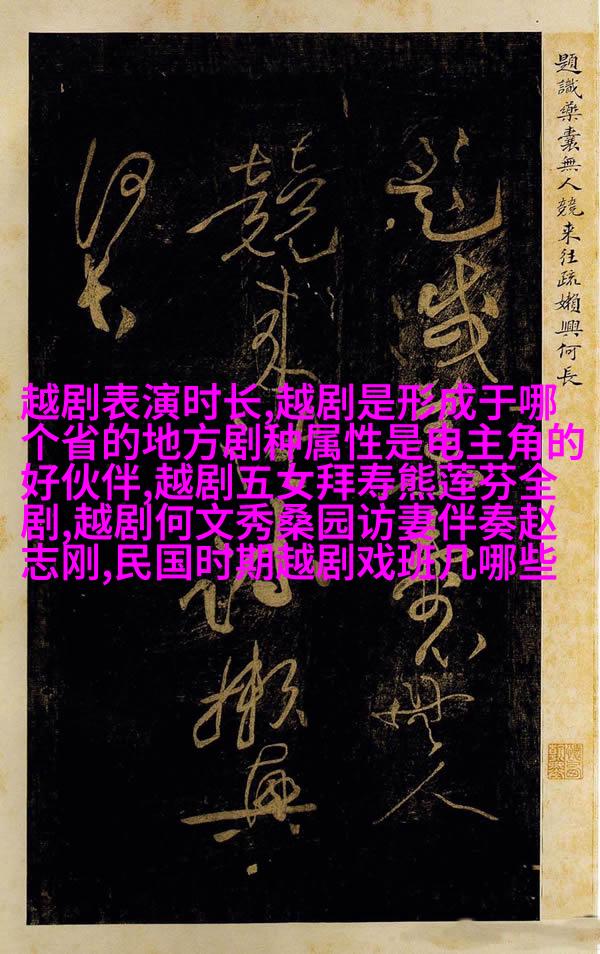 題識藥囊無人競来往疏嬾興何長
題識藥囊無人
競来往疏嬾興
何長
越剧表演时长,越剧是形成于哪
个省的地方剧种属性是电主角的
好伙伴,越剧五女拜寿熊莲芬全
剧,越剧何文秀桑园访妻伴奏赵
志刚,民国时期越剧戏班几哪些